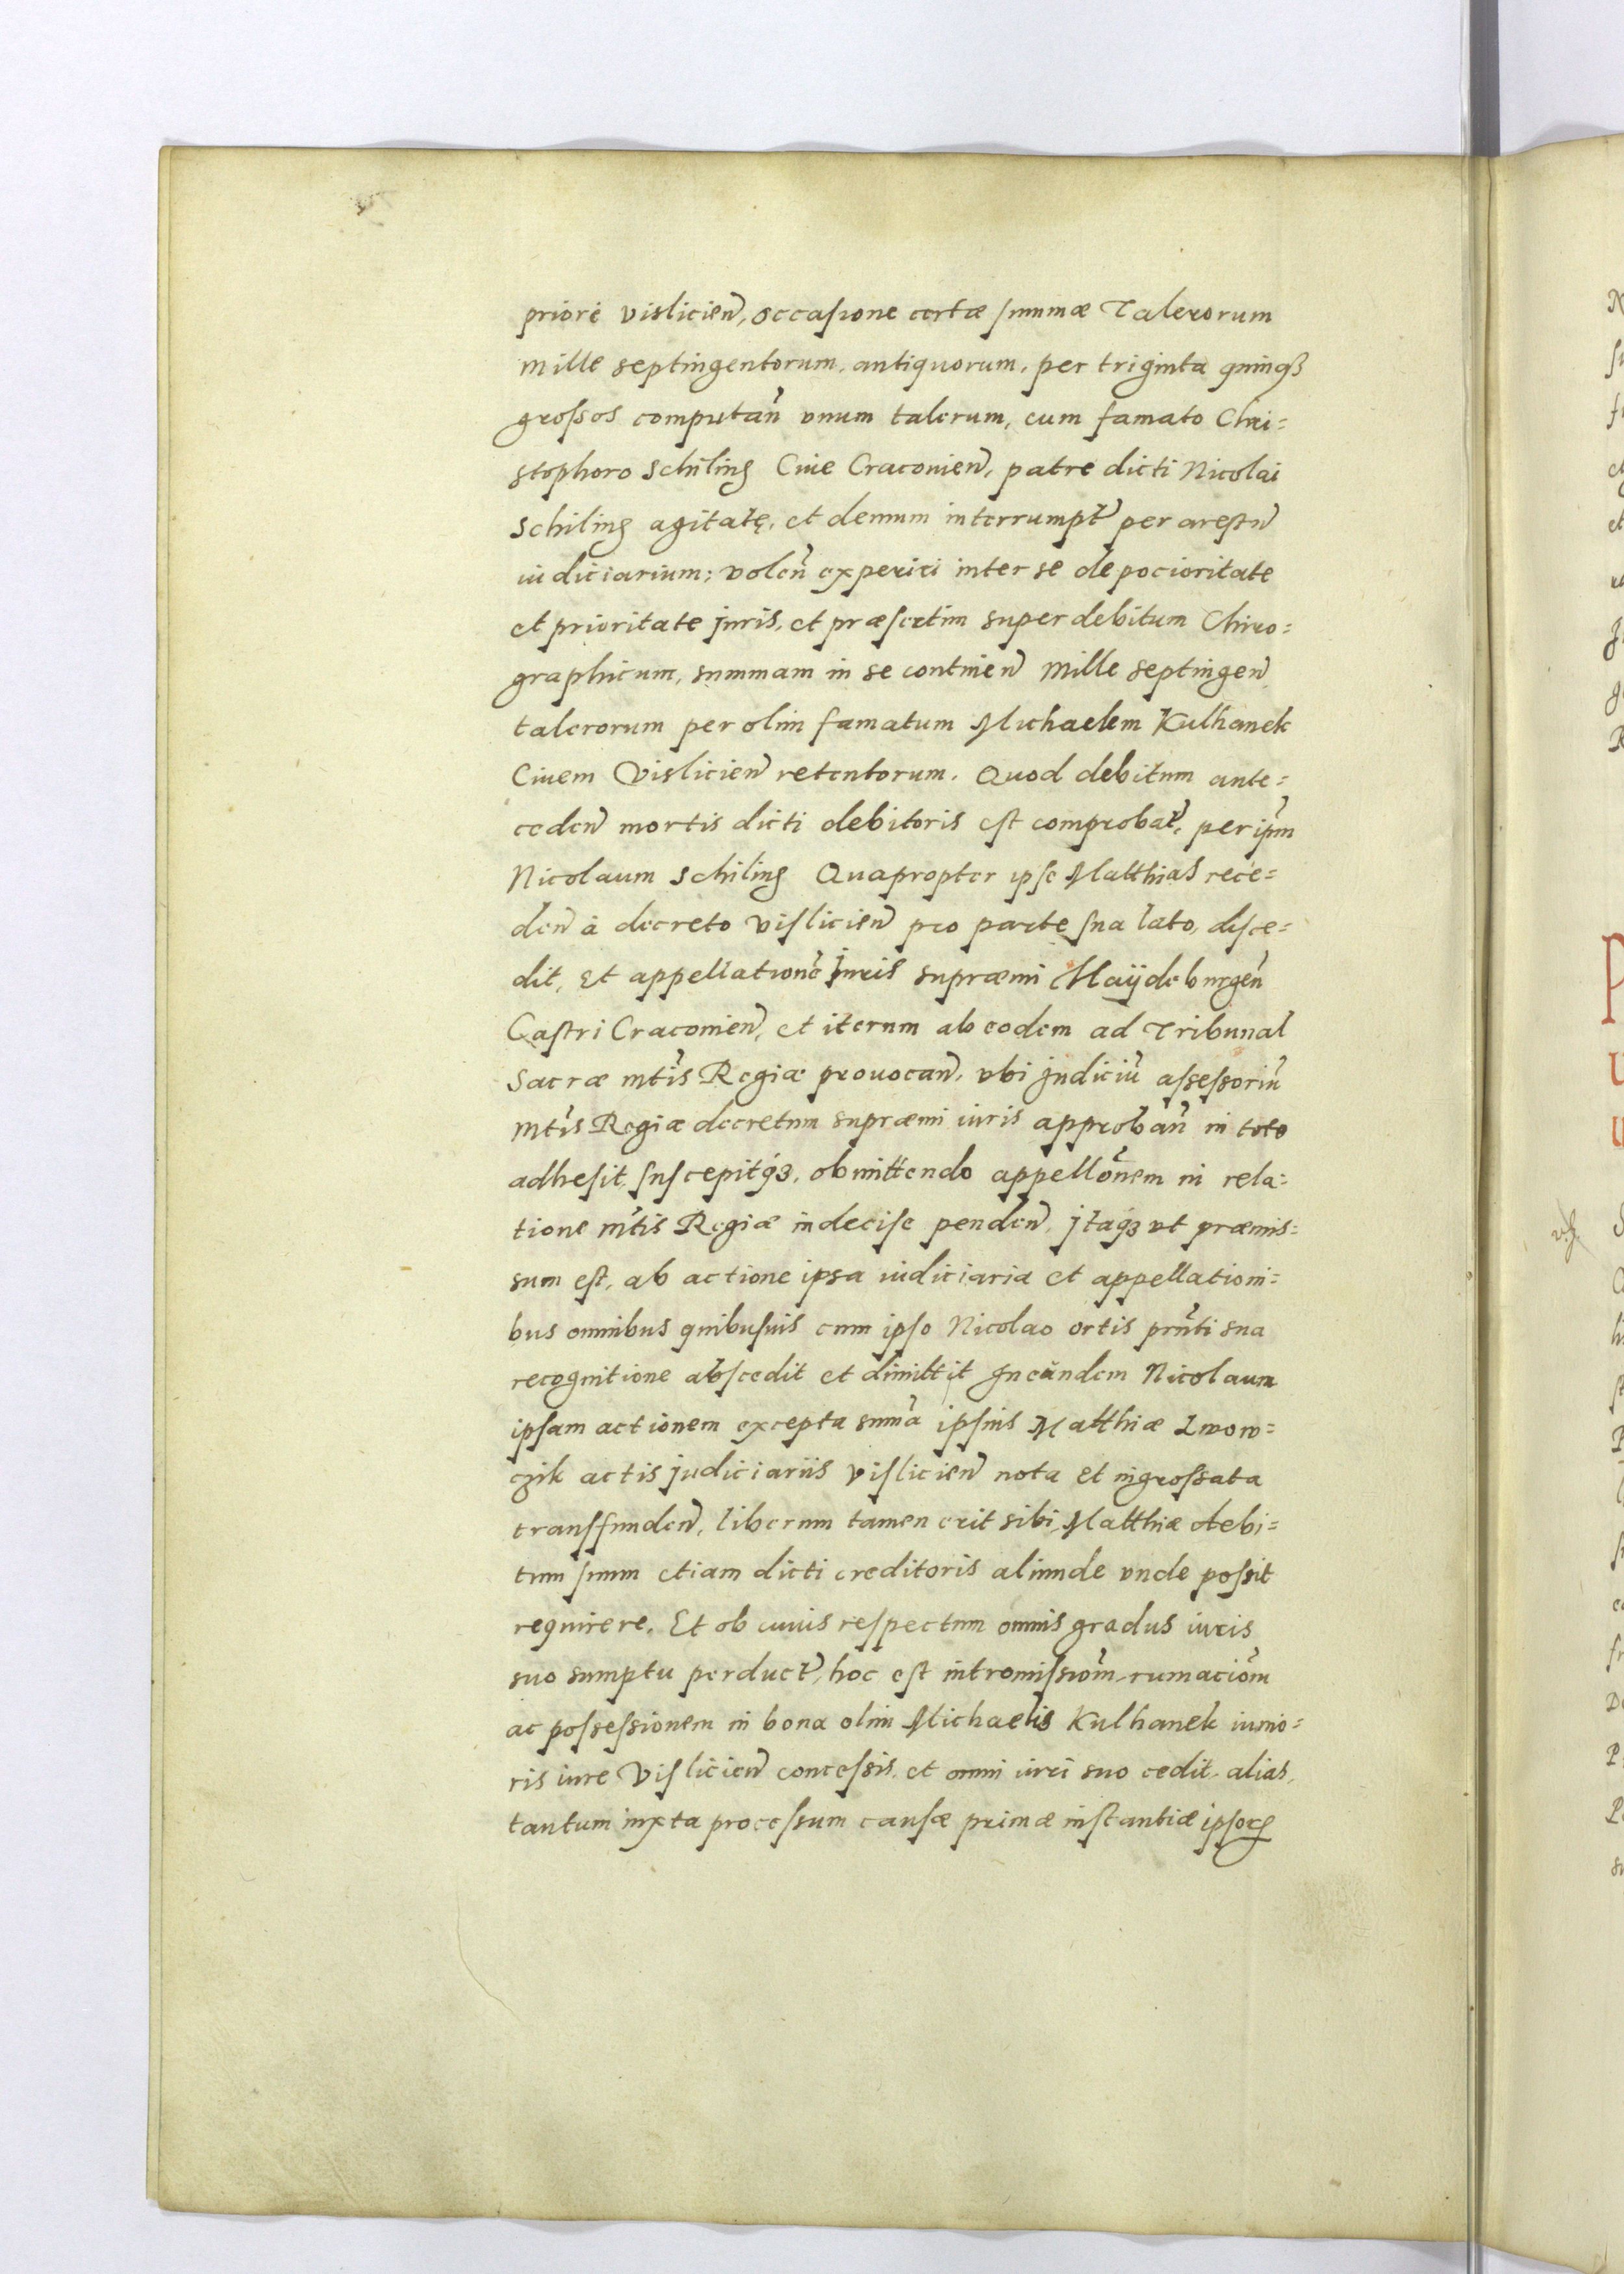 priori vislicien̄, occaſione certæ ſummæ Talerorum
mille septingentorum, antiquorum, per triginta quinqꝫ
groſsos computan̄ vnum talerum, cum famato Chri=
stophoro Schiling Ciue Cracouien̄, patre dicti Nicolai
Schiling agitatę, et demum interrumpt̄ per areſtū
iudiciarium; volen̄ experiri inter se de pocioritate
et prioritate juris, et præſertim super debitum Chiro=
graphicum, summam in se continen̄ Mille septingen̄
talerorum per olim famatum Michaelem Kulhanek
Ciuem Vislicien̄ retentorum. Quod debitum ante=
ceden̄ mortis dicti debitoris eſt comprobat̄, per ip̄m
Nicolaum Schiling Quapropter ipſe Matthias rece=
den̄ à decreto viſlicien̄ pro parte ſua lato, diſce=
dit, Et appellationē Juris supræmi Maÿdeburgen̄
Caſtri Cracouien̄, et iterum ab eodem ad Tribunal
Sacræ mt̄is Regiæ prouocan̄, vbi Judiciū aſseſsoriū
mt̄is Regiæ decretum supræmi iuris approban̄ in toto
adheſit, ſuſcepitqꝫ, obmittendo appellōnem in rela=
tione mt̄is Regiæ indeciſe penden̄, jtaqꝫ vt præmis=
sum eſt, ab actione ipsa iudiciaria et appellationi=
bus omnibus quibuſuis cum ipſo Nicolao ortis prn̄ti sua
recognitione abſcedit et dimittit Jn eūndem Nicolaum
ipſam actionem excepta sum̄a ipſius Matthiæ Lwow=
czik actis judiciariis viſlicien̄ nota et ingroſsata
tranſfunden̄, liberum tamen erit sibi Matthiæ debi=
tum ſuum etiam dicti creditoris aliunde vnde poſsit
requirere. Et ob cuius reſpectum omnis gradus iuris
suo sumptu perduct̄, hoc eſt intromiſsiōm, rumaciōm
ac poſseſsionem in bona olim Michaelis Kulhanek iunio=
ris iure Viſlicien̄ conceſsis, et omni iuri suo cedit, alias,
tantum iuxta proceſsum cauſæ primæ inſtantiæ ipſoꝝ